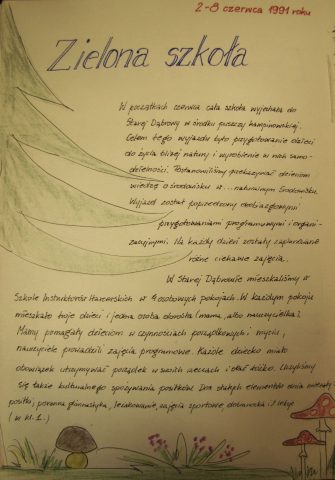 2-8 czerwca 1991 roku
Zielona szkoła
W początkach czerwca cała szkoła wyjechała do
Starej Dąbrowy w środku puszczy kampinowskiej.
Celem tego wyjazdu było przygotowanie dzieci
do życia bliżej natury i wyrobienie w nas samo-
dzielności. Postanowiliśmy przekazywać dzieciom
wiedzę o środowisku w... naturalnym środowisku.
Wyjazd został poprzedzony drobiazgowymi
przygotowaniami programowymi i organi-
zacyjnymi. Na każdy dzień zostały zaplanowane
różne ciekawe zajęcia.
W Starej Dąbrowie mieszkaliśmy w
Szkole Instruktorów Harcerskich w 4 osobowych pokojach. W każdym pokoju
mieszkało troje dzieci i jedna osoba dorosła (mama, albo nauczycielka).
Mamy pomagały dzieciom w czynnościach porządkowych i myciu,
nauczyciele prowadzili zajęcia programowe. Każde dziecko miało
obowiązek utrzymywać porządek w swoich rzeczach i słać łóżko. Uczyliśmy
się także kulturalnego spożywania posiłków. Do stałych elementów dnia należały
posiłki, poranna gimnastyka, leżakowanie, zajęcia sportowe, dobranocka i 2 lekcje
(w kl. 1.)